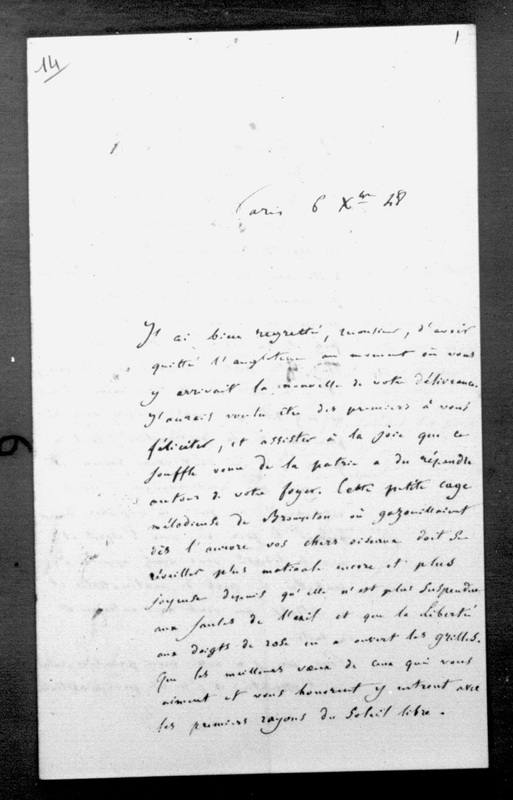 14
1
Paris 6 Xbre 48
J'ai bien regretté, monsieur, d'avoir
quitté l'angleterre au moment où vous
y arrivait la nouvelle de votre délivrance.
J'aurais voulu être des premiers à vous
féliciter, et assister à la joie que ce
souffle venu de la patrie a du répandre
autour de votre foyer. Cette petite cage
mélodieuse de Brompton où gazouillaient
dès l'aurore vos chers oiseaux doit se
réveiller plus matinale encore et plus
joyeuse depuis qu'elle n'est plus suspendue
aux saules de l'exil et que la Liberté
aux doigts de rose en a ouvert les grilles.
Que les meilleurs vœux de ceux qui vous
aiment et vous honorent y entrent avec
les premiers rayons du Soleil libre.